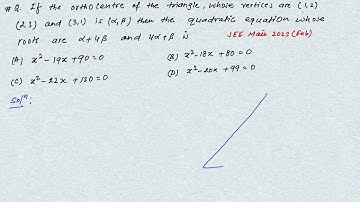 # Q. If the orthocentre of the triangle, whose vertices are (1,2)
(2,3) and (3,1) is (α,β) then the quadratic equation whose
roots are α+4β and 4α+β is JEE Main 2023 (Feb)
(A) x²-19x+90=0 (B) x²-18x+80=0
(C) x²-22x+120=0 (D) x²-20x+99=0
Solⁿ: